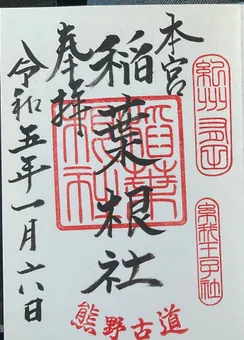 本宮
稲葉根社
奉拝
令和五年一月六日
稲葉根社
熊野古道